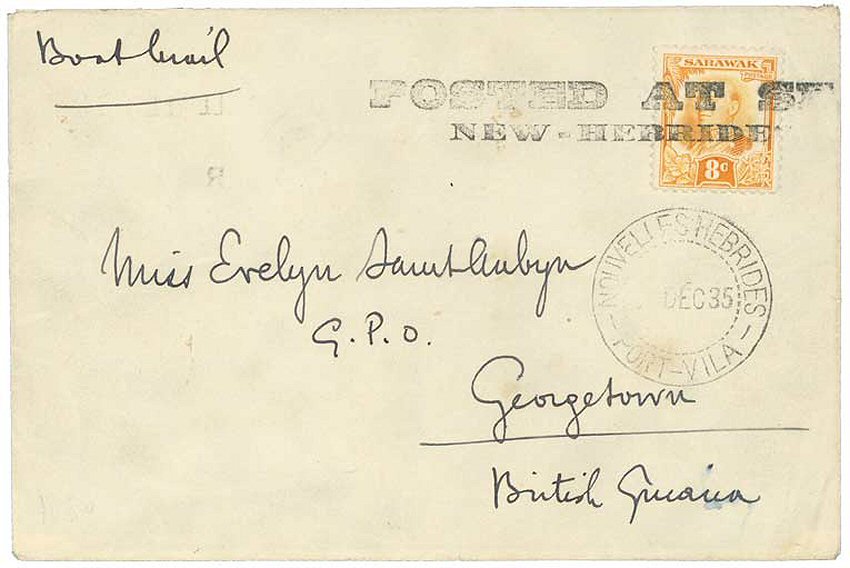 Boat Mail
SARAWAK
POSTAGE
POSTED AT S
NEW-HEBRIDE
8c
NOUVELLES-HEBRIDES
DÉC35
PORT-VILA
Miss Evelyn Saint Aubyn
G.P.O.
Georgetown
British Guiana